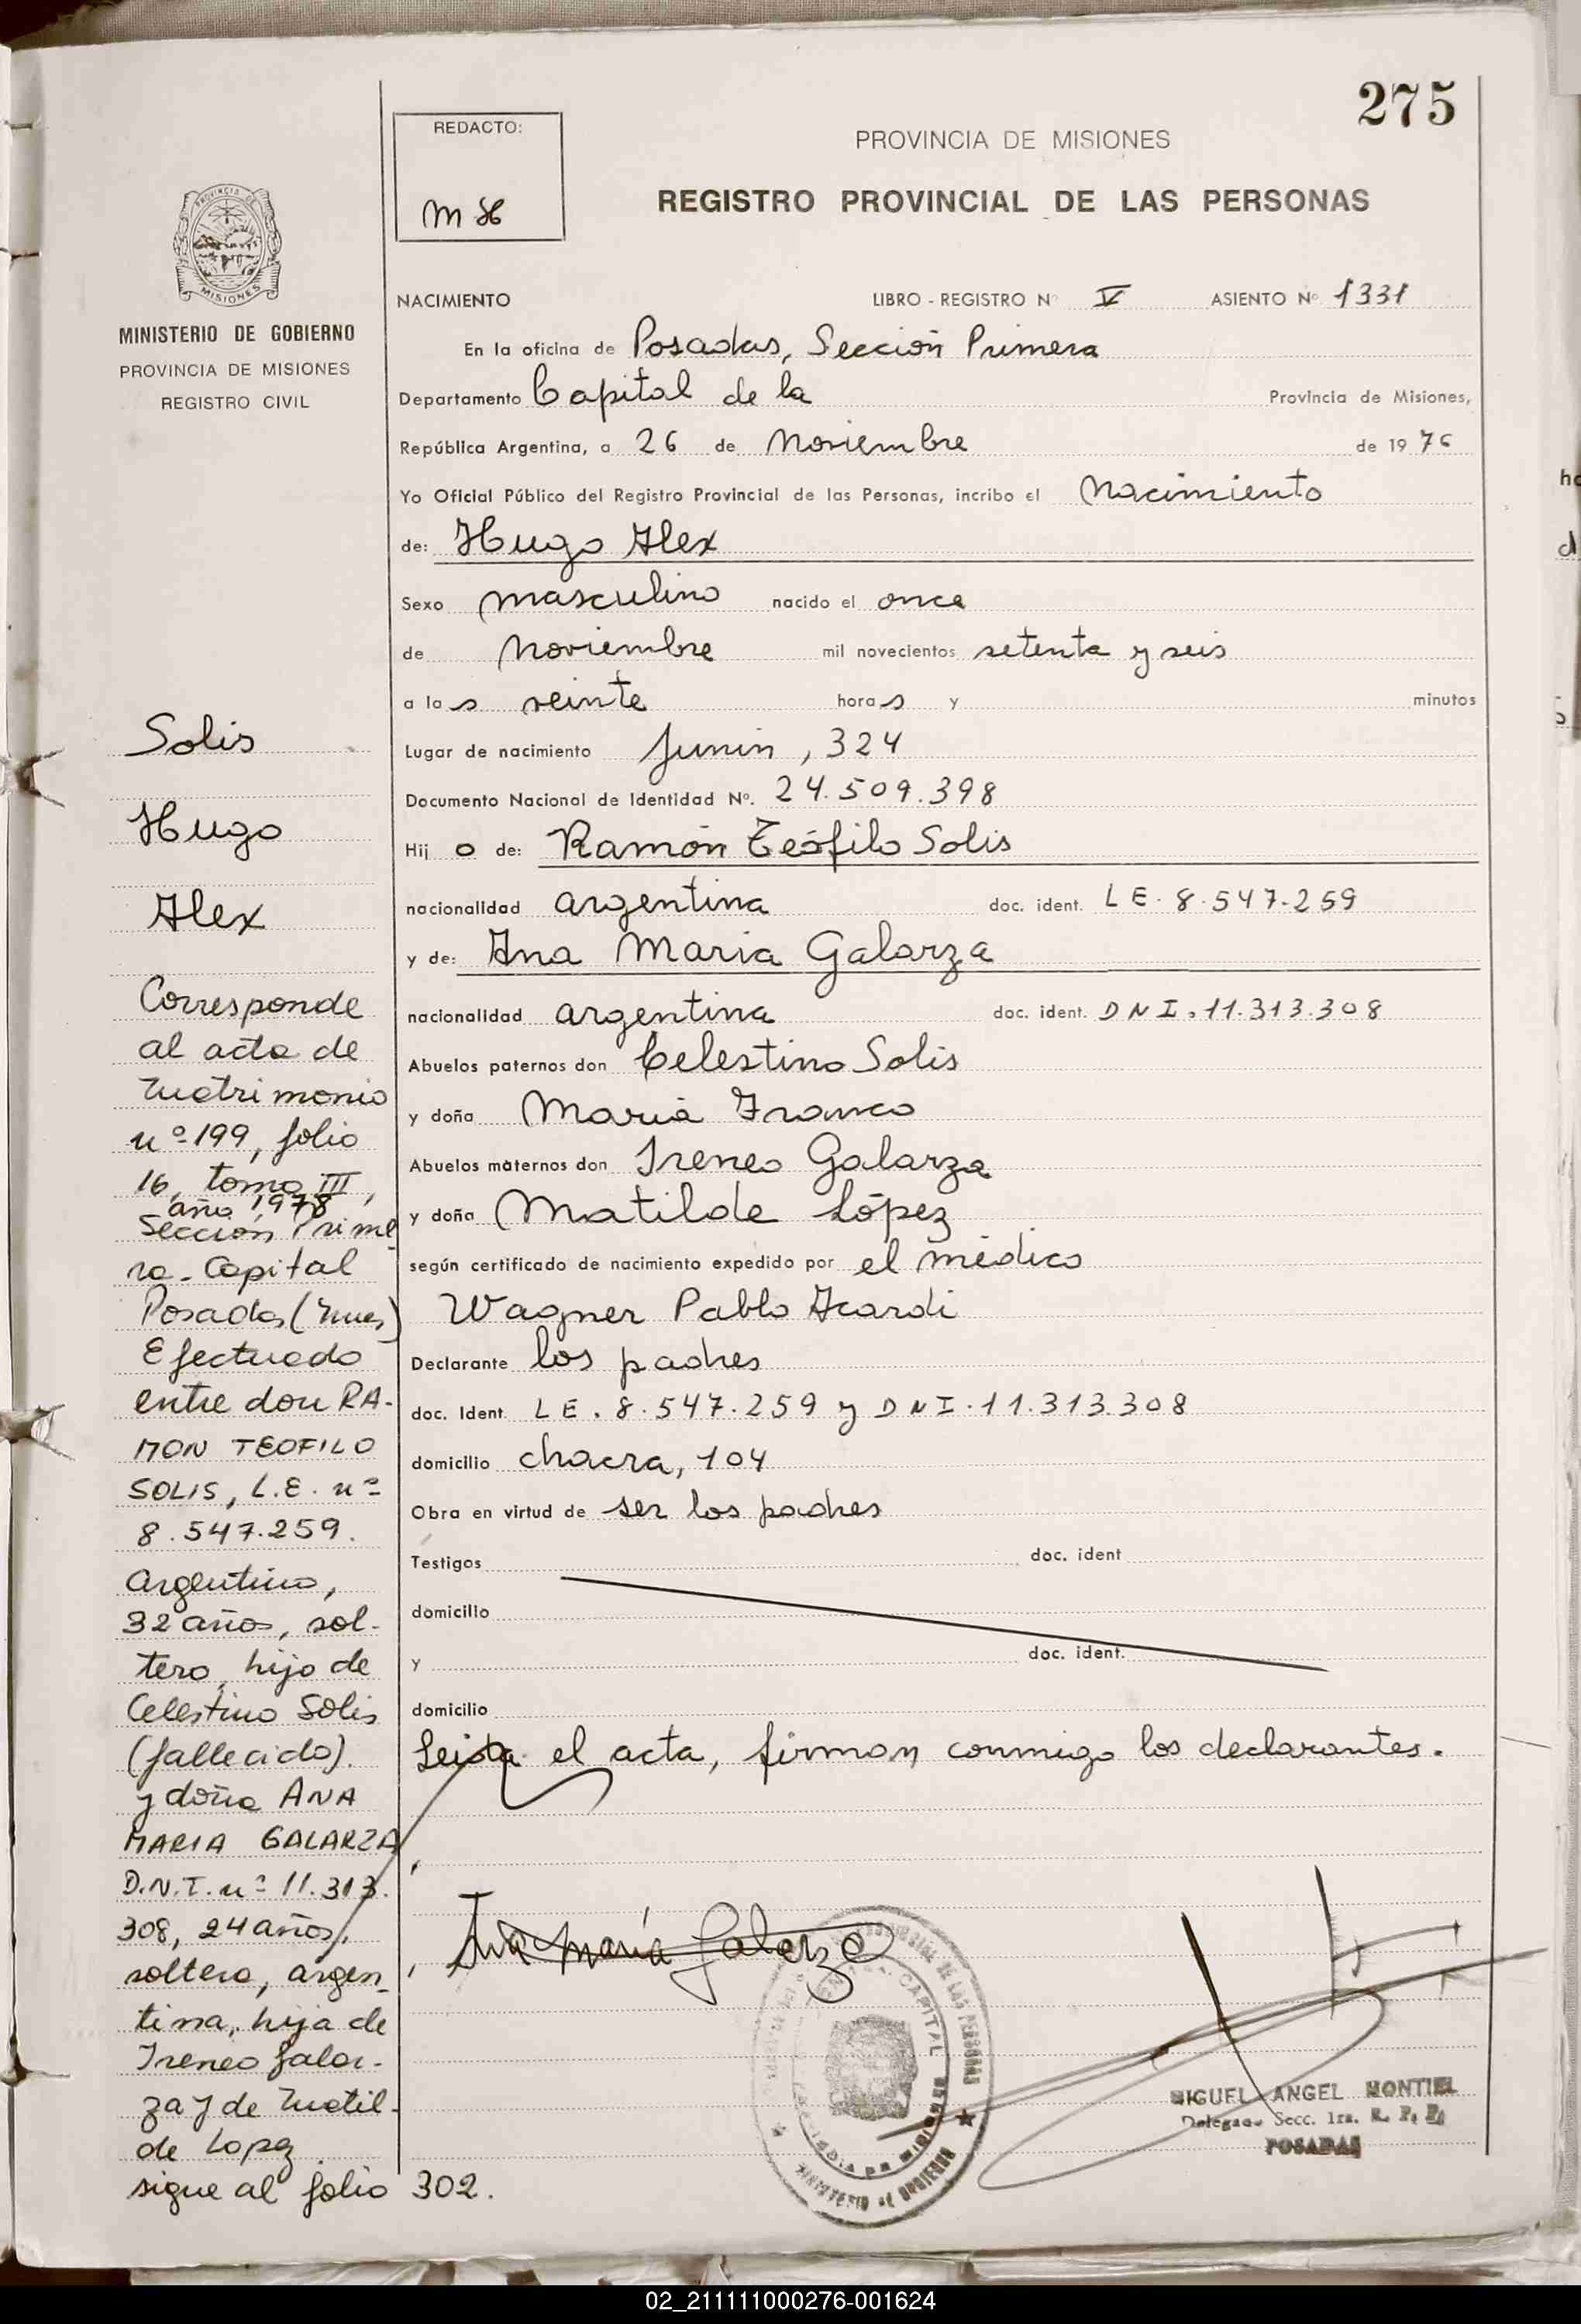 275
REDACTO:
PROVINCIA DE MISIONES
REGISTRO PROVINCIAL DE LAS PERSONAS
PROVINCIA DE
MISIONES
MINISTERIO DE GOBIERNO
PROVINCIA DE MISIONES
REGISTRO CIVIL
NACIMIENTO LIBRO - REGISTRO Nº V ASIENTO Nº 1331
En la oficina de Posadas, Sección Primera
Departamento Capital de la Provincia de Misiones,
República Argentina, a 26 de Noviembre de 1976
Yo Oficial Público del Registro Provincial de las Personas, incribo el Nacimiento
de: Hugo Alex
Sexo masculino nacido el once
de Noviembre mil novecientos setenta y seis
a las veinte horas y minutos
Lugar de nacimiento Junin, 324
Documento Nacional de Identidad Nº. 24.509.398
Hijo de: Ramón Teófilo Solis
nacionalidad argentina doc. ident. LE. 8.547.259
y de: Ana Maria Galarza
nacionalidad argentina doc. ident. DNI. 11.313.308
Abuelos paternos don Celestino Solis
y doña Maria Franco
Abuelos maternos don Ireneo Galarza
y doña Matilde López
según certificado de nacimiento expedido por el médico
Wagner Pablo Acardi
Declarante los padres
doc. Ident. LE. 8.547.259 y DNI. 11.313.308
domicilio chacra, 104
Obra en virtud de ser los padres
Testigos doc. ident
domicilio
y doc. ident.
domicilio
Leida el acta, firman conmigo los declarantes.
Ana María Galarza
MIGUEL ANGEL MONTIEL
Delegado Secc. 1ra. R. P. P.
POSADAS
Solis
Hugo
Alex
Corresponde
al acta de
Matrimonio
nº 199, folio
16, tomo III,
año 1978
Sección Prime
ra - Capital
Posadas (Mnes)
Efectuado
entre don RA-
MON TEOFILO
SOLIS, L.E. nº
8.547.259.
Argentino,
32 años, sol-
tero, hijo de
Celestino Solis
(fallecido).
y doña ANA
MARIA GALARZA
D.N.I. nº 11.313.
308, 24 años,
soltera, argen-
tina, hija de
Ireneo Galar-
za y de Matil-
de Lopez
sigue al folio 302.
02_211111000276-001624